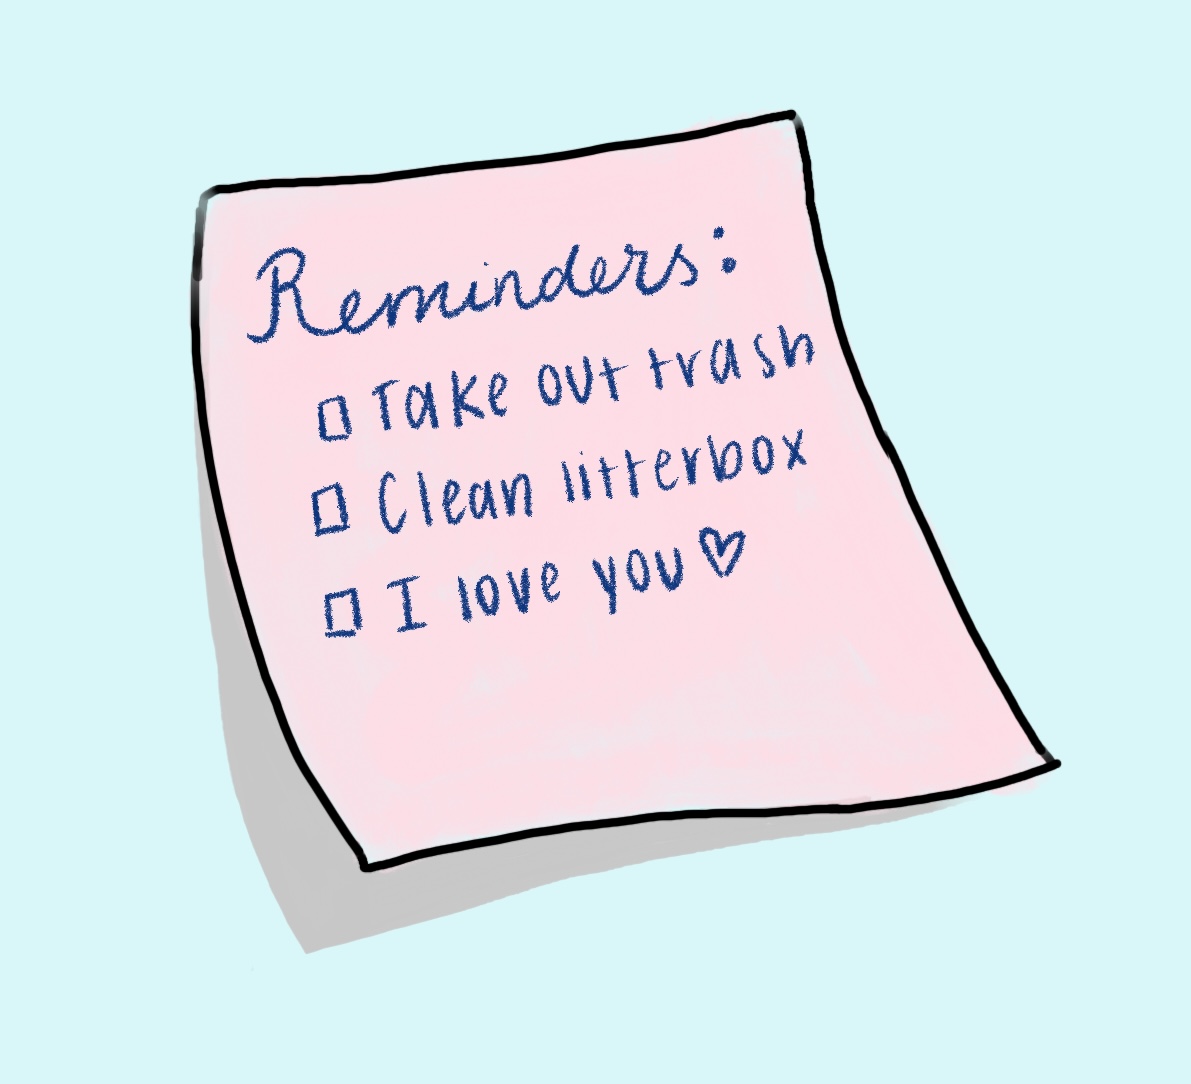 Reminders:
☐ Take out trash
☐ Clean litterbox
☐ I love you ♡